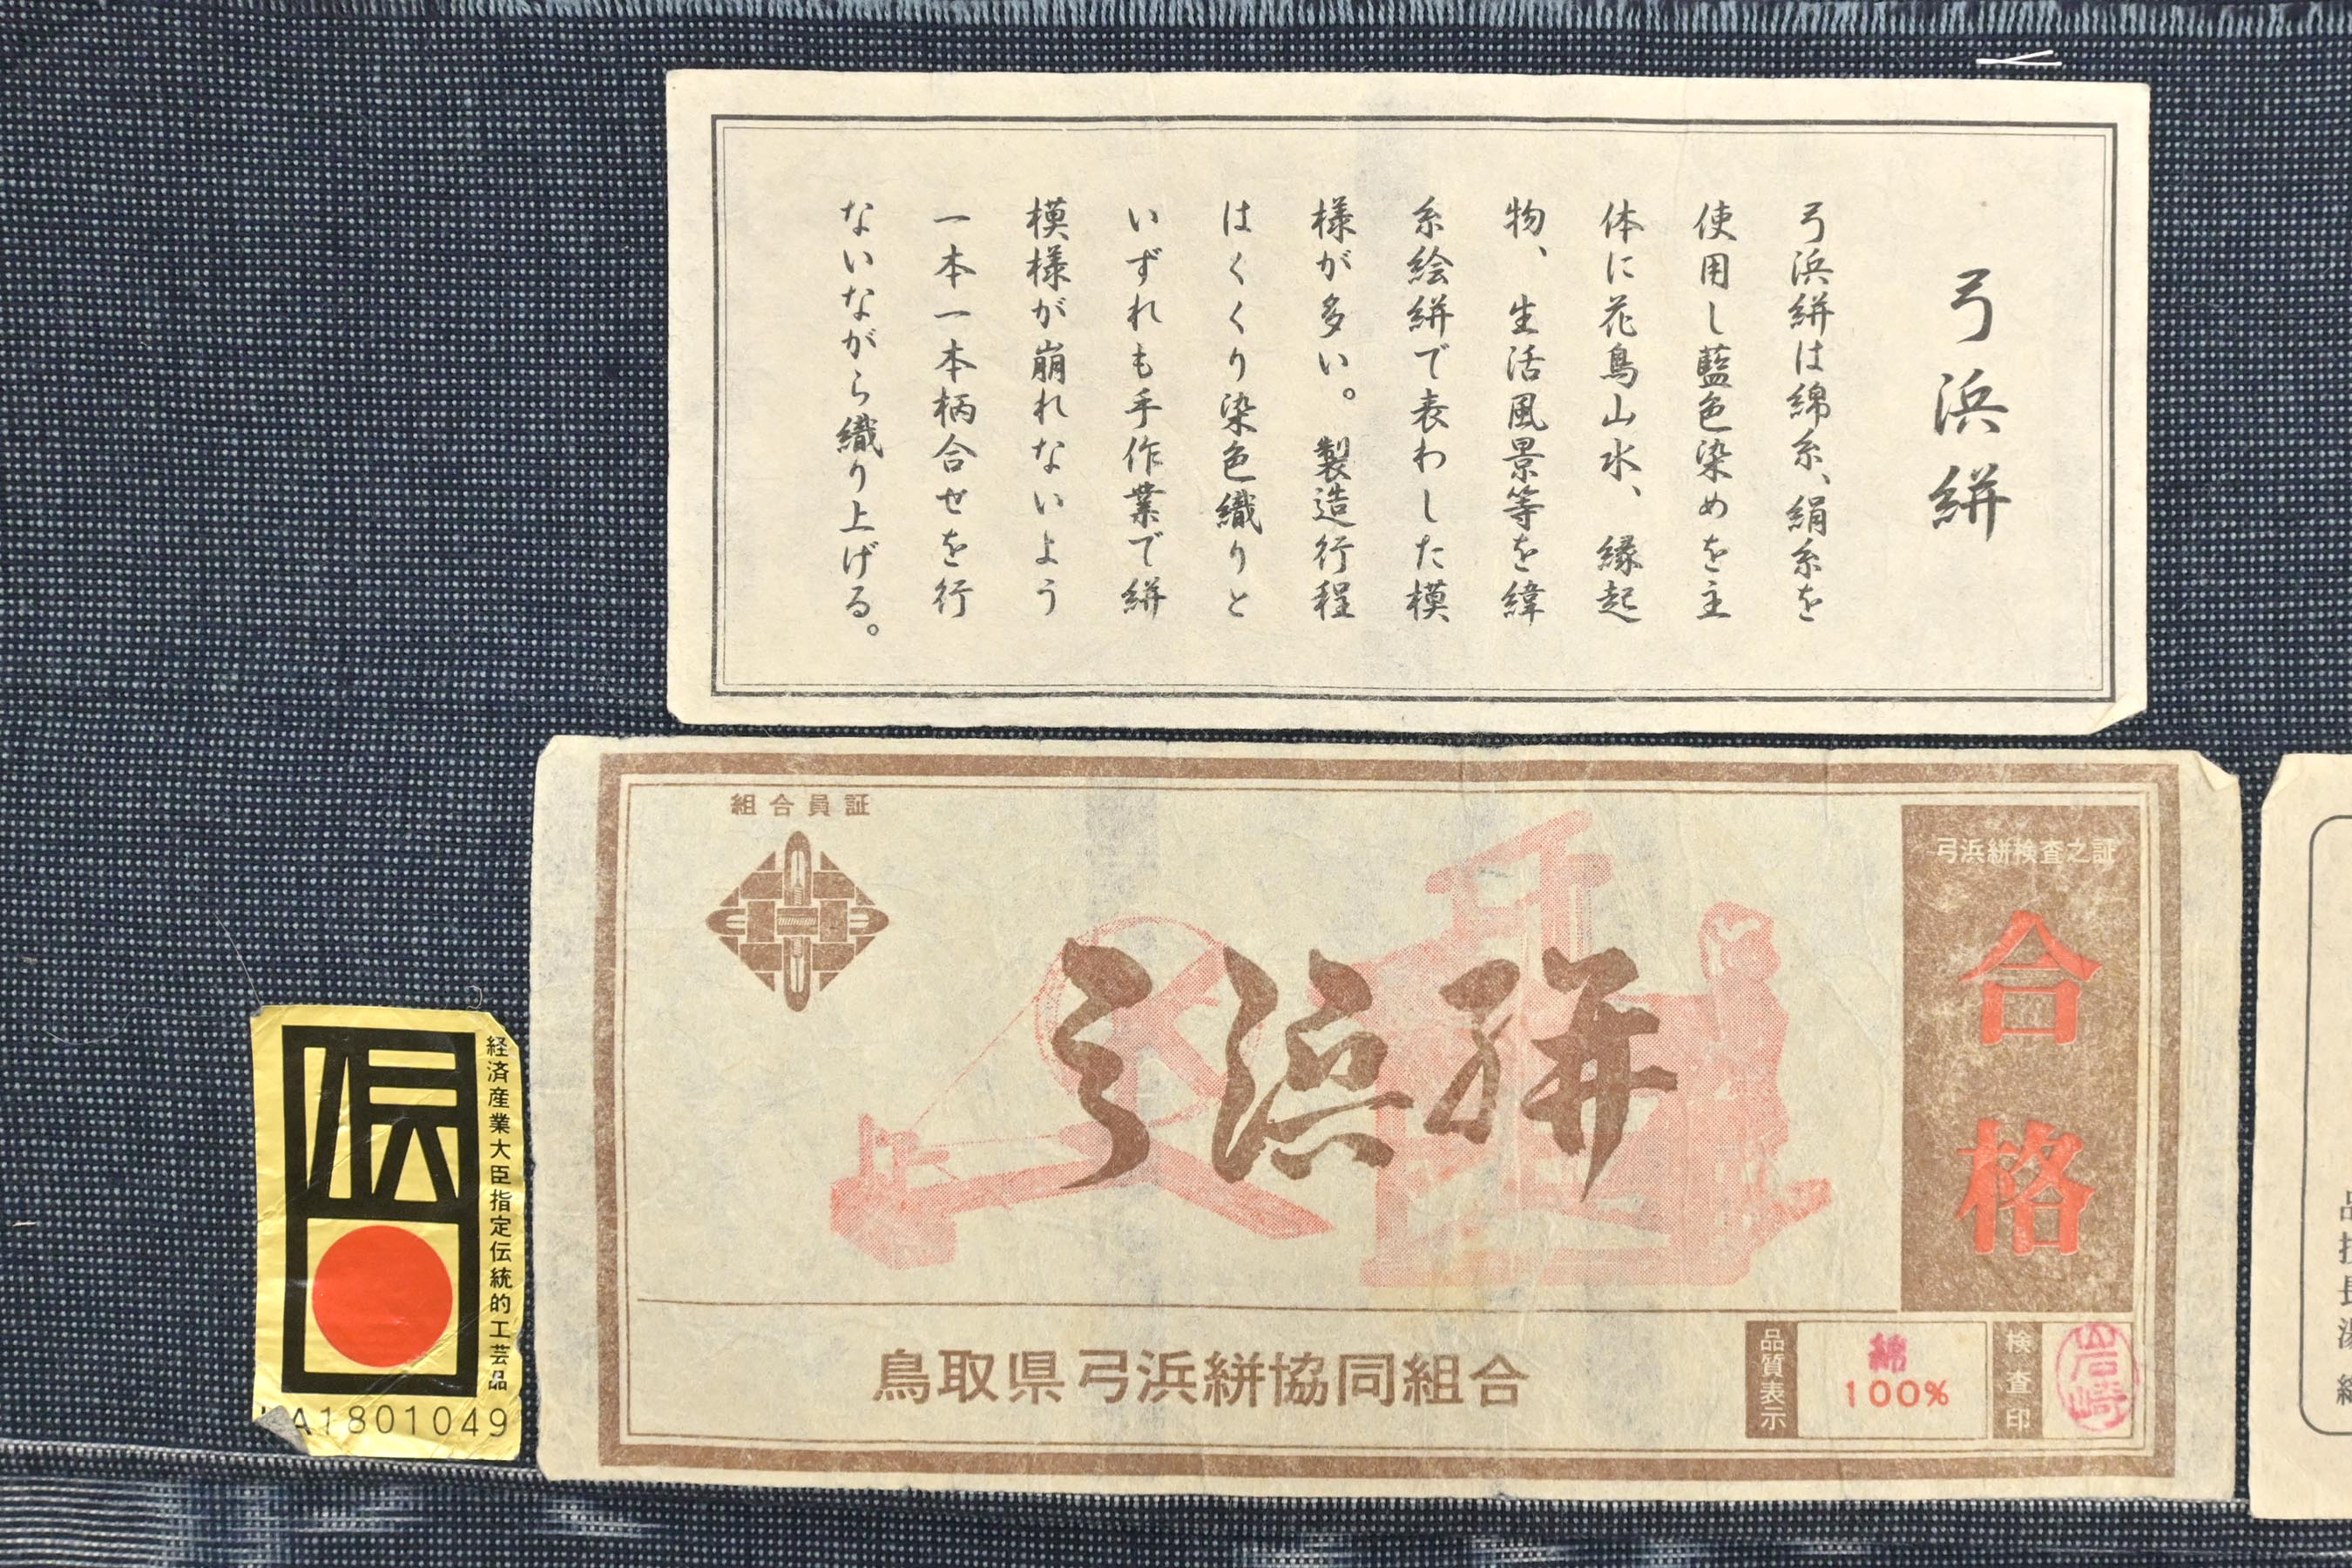 弓浜絣
弓浜絣は綿糸、絹糸を
使用し藍色染めを主
体に花鳥山水、縁起
物、生活風景等を緯
糸絵絣で表わした模
様が多い。製造行程
はくくり染色織りと
いずれも手作業で絣
模様が崩れないよう
一本一本柄合せを行
ないながら織り上げる。
組合員証
弓浜絣
弓浜絣検査之証
合格
鳥取県弓浜絣協同組合
品質表示
綿
100%
検査印
岩崎
伝
経済産業大臣指定伝統的工芸品
A1801049